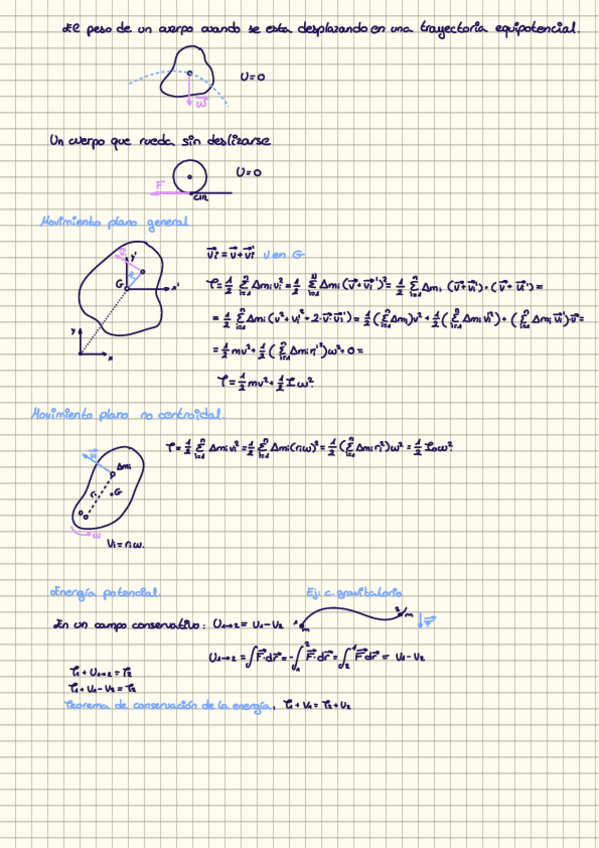 El peso de un cuerpo cuando se esta desplazando en una trayectoria equipotencial.
U=0
w
Un cuerpo que rueda sin deslizarse
F
U=0
CIR
Movimiento plano general
v⃗i = v⃗ + v⃗i' v en G
y'
G
x'
y
x
T = 1/2 Σ Δmi vi² = 1/2 Σ Δmi (v⃗+v⃗i')² = 1/2 Σ Δmi (v⃗+v⃗i')·(v⃗+v⃗i') =
= 1/2 Σ Δmi (v² + vi'² + 2·v⃗·v⃗i') = 1/2 (Σ Δmi) v² + 1/2 (Σ Δmi vi'²) + (Σ Δmi v⃗i')·v⃗ =
= 1/2 mv² + 1/2 (Σ Δmi ri'²) ω² + 0 =
T = 1/2 mv² + 1/2 I ω².
Movimiento plano no centroidal.
T = 1/2 Σ Δmi vi² = 1/2 Σ Δmi (ri ω)² = 1/2 (Σ Δmi ri²) ω² = 1/2 I₀ ω².
Δmi
ri
G
O
ω
Vi = ri ω.
Energía potencial.
Ej: c. gravitatorio
En un campo conservativo: U1→2 = V1 - V2
1
m
2
m
F
U1→2 = ∫ F⃗·dr⃗ = -∫₁² F⃗·dr⃗ = ∫₂¹ F⃗dr⃗ = V1 - V2
T1 + U1→2 = T2
T1 + V1 - V2 = T2
Teorema de conservación de la energía: T1 + V1 = T2 + V2